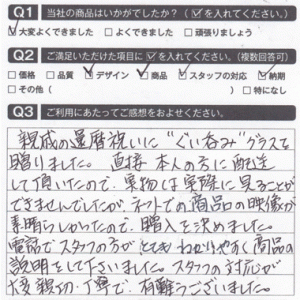 Q1 当社の商品はいかがでしたか？（☑を入れてください。）
☑大変よくできました □よくできました □頑張りましょう
Q2 ご満足いただけた項目に☑を入れてください。（複数回答可）
□価格 □品質 ☑デザイン ☑商品 ☑スタッフの対応 ☑納期
□その他（ ） □特になし
Q3 ご利用にあたってご感想をおよせください。
親戚の還暦祝いに"ぐい呑み"グラスを
贈りました。直接本人の方に配送
して頂いたので、実物は実際に見ることが
できませんでしたが、ネットでの商品の映像が
素晴らしかったので、購入を決めました。
電話でスタッフの方がとてもわかりやすく商品の
説明をして下さいました。スタッフの対応が
大変親切・丁寧で、有難うございました。